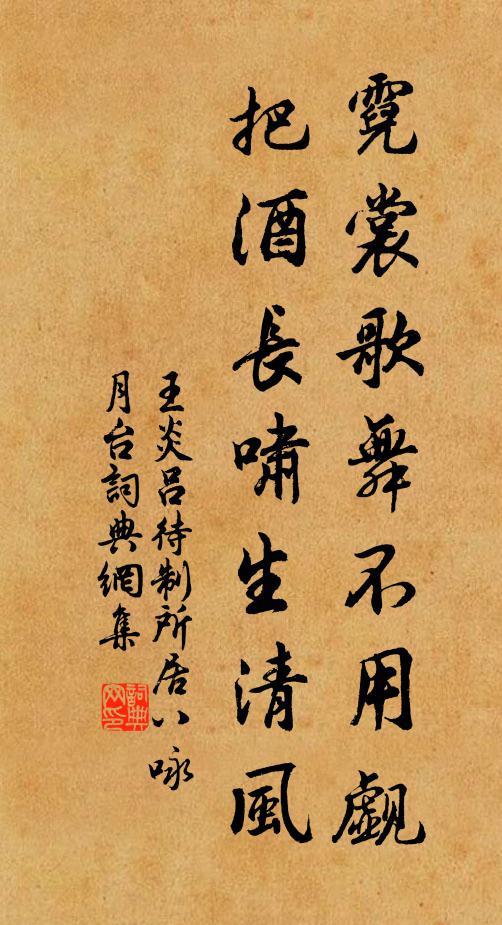 霓裳歌舞不用觑
把酒長嘯生清風
王炎呂待制所居八咏
月台詞典網集
詞典网印